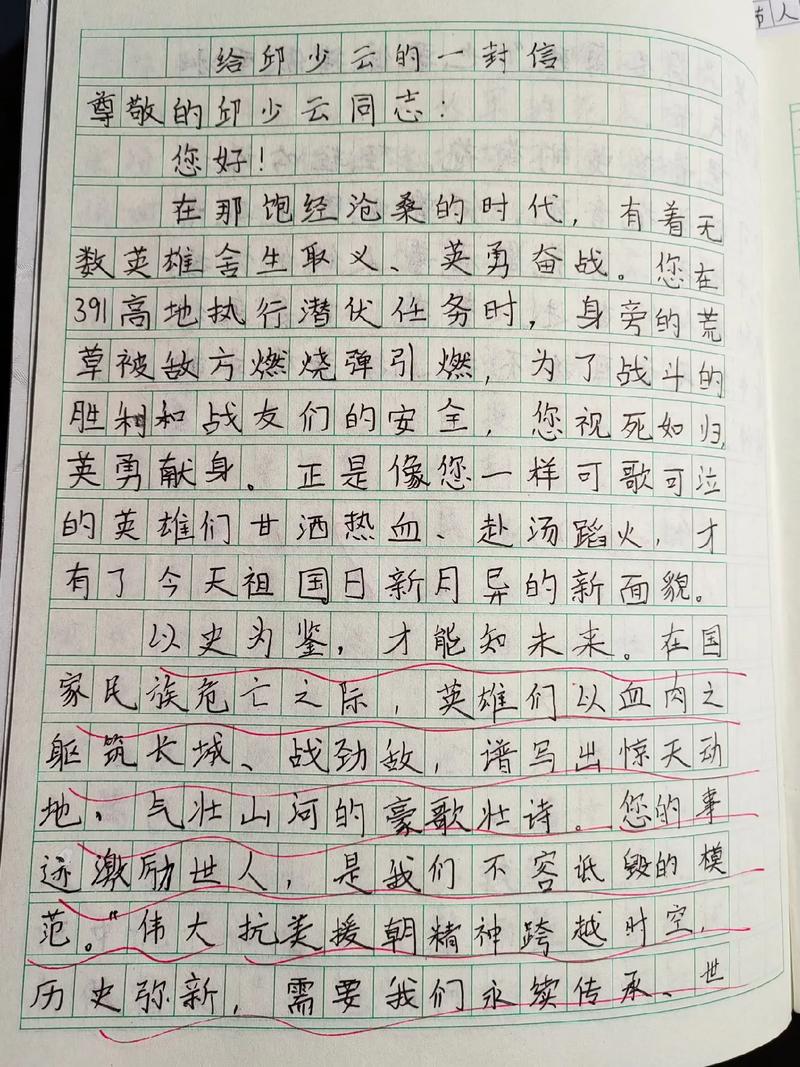 节人
给邱少云的一封信
尊敬的邱少云同志:
您好!
在那饱经沧桑的时代,有着无
数英雄舍生取义、英勇奋战。您在
391高地执行潜伏任务时,身旁的荒
草被敌方燃烧弹引燃,为了战斗的
胜利和战友们的安全,您视死如归,
英勇献身。正是像您一样可歌可泣
的英雄们甘洒热血、赴汤蹈火,才
有了今天祖国日新月异的新面貌。
以史为鉴,才能知未来。在国
家民族危亡之际,英雄们以血肉之
躯筑长城、战劲敌,谱写出惊天动
地、气壮山河的豪歌壮诗。您的事
迹激励世人,是我们不容诋毁的模
范。“伟大抗美援朝精神跨越时空,
历史弥新,需要我们永续传承、世